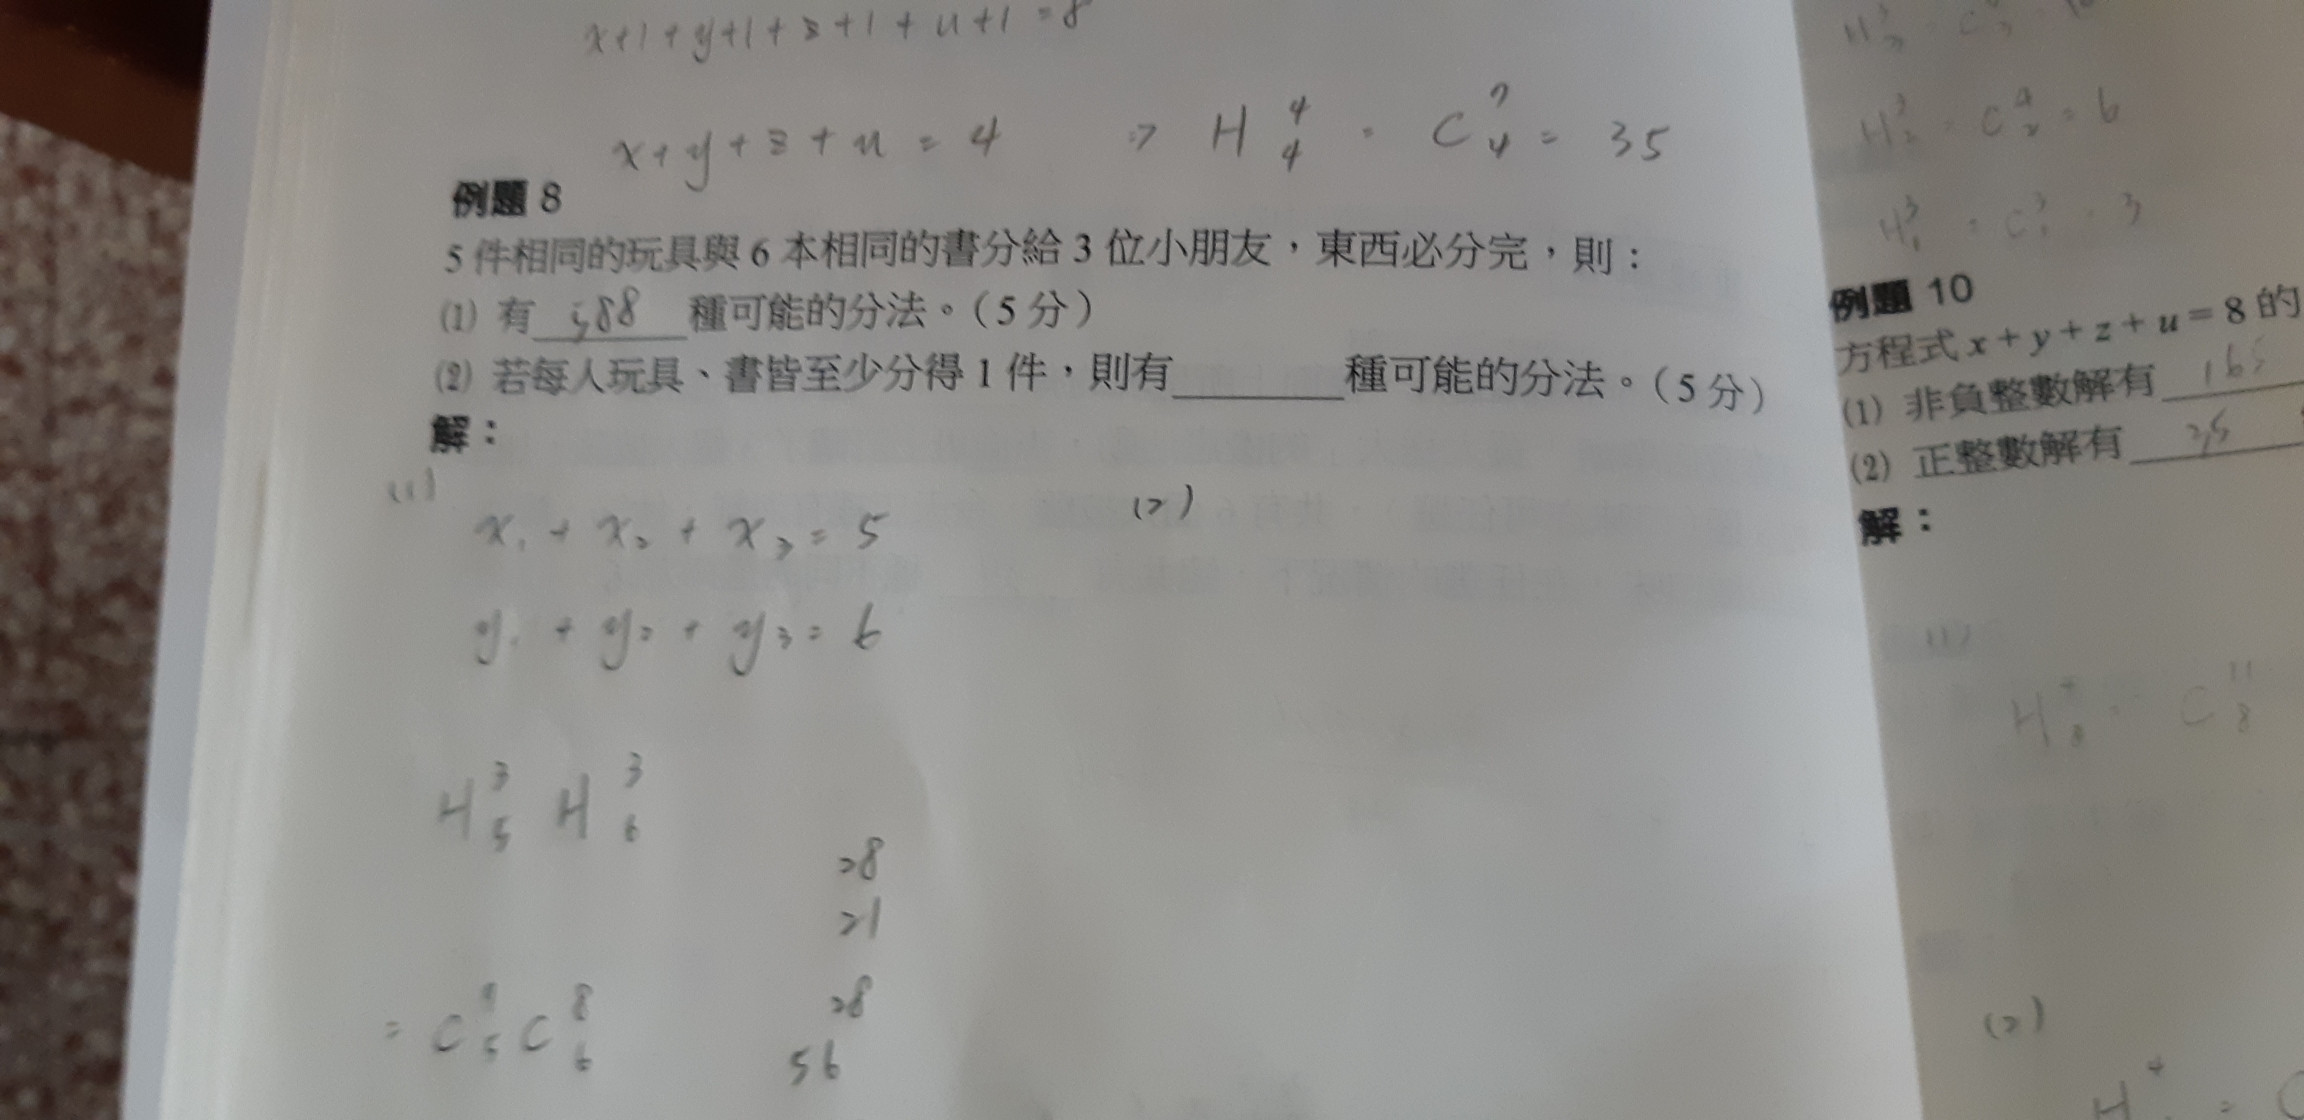 x+1+y+1+z+1+u+1=8
x+y+z+u=4 ⇒ H⁴₄ = C⁷₄ = 35
例題 8
5 件相同的玩具與 6 本相同的書分給 3 位小朋友，東西必分完，則：
(1) 有 588 種可能的分法。(5 分)
(2) 若每人玩具、書皆至少分得 1 件，則有______種可能的分法。(5 分)
解：
(1)
x₁+x₂+x₃=5
y₁+y₂+y₃=6
H³₅ H³₆
= C⁷₅ C⁸₆
28
21
28
56
(2)
H³₂ = C⁴₂ = 6
H³₁ = C³₁ = 3
例題 10
方程式 x+y+z+u=8 的
(1) 非負整數解有 165
(2) 正整數解有 35
解：
(1)
H⁴₈ = C¹¹₈
(2)
H⁴